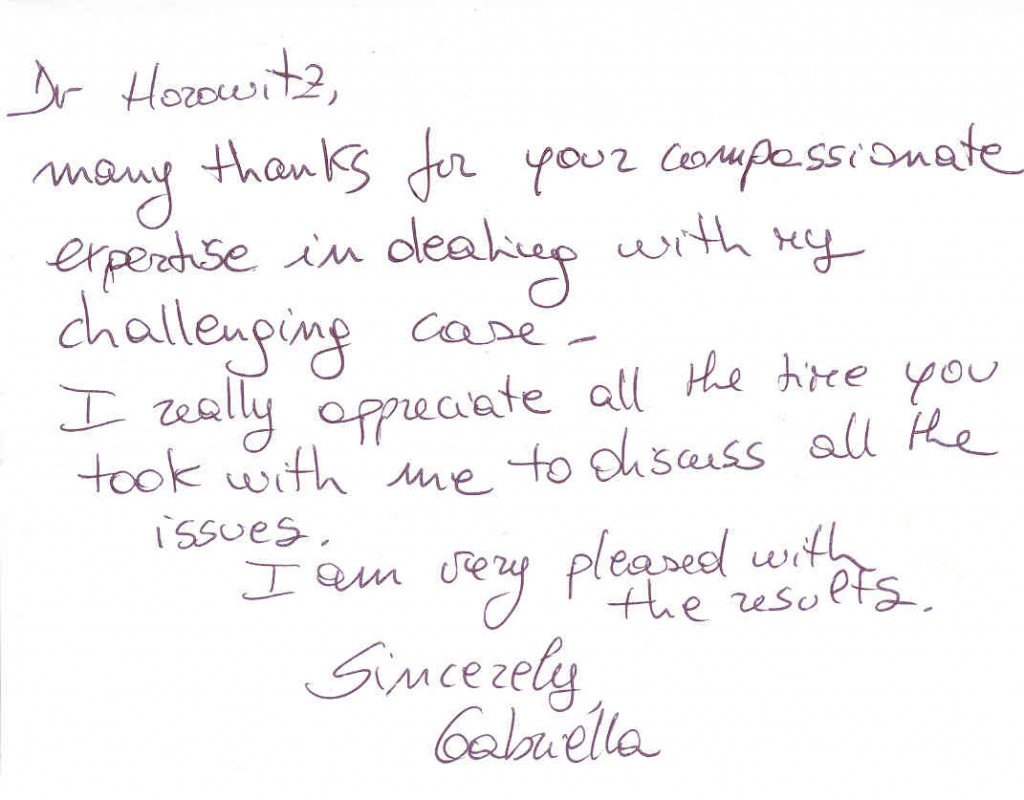 Dr Horowitz,
many thanks for your compassionate
expertise in dealing with my
challenging case -
I really appreciate all the time you
took with me to discuss all the
issues.
I am very pleased with
the results.
Sincerely,
Gabriella